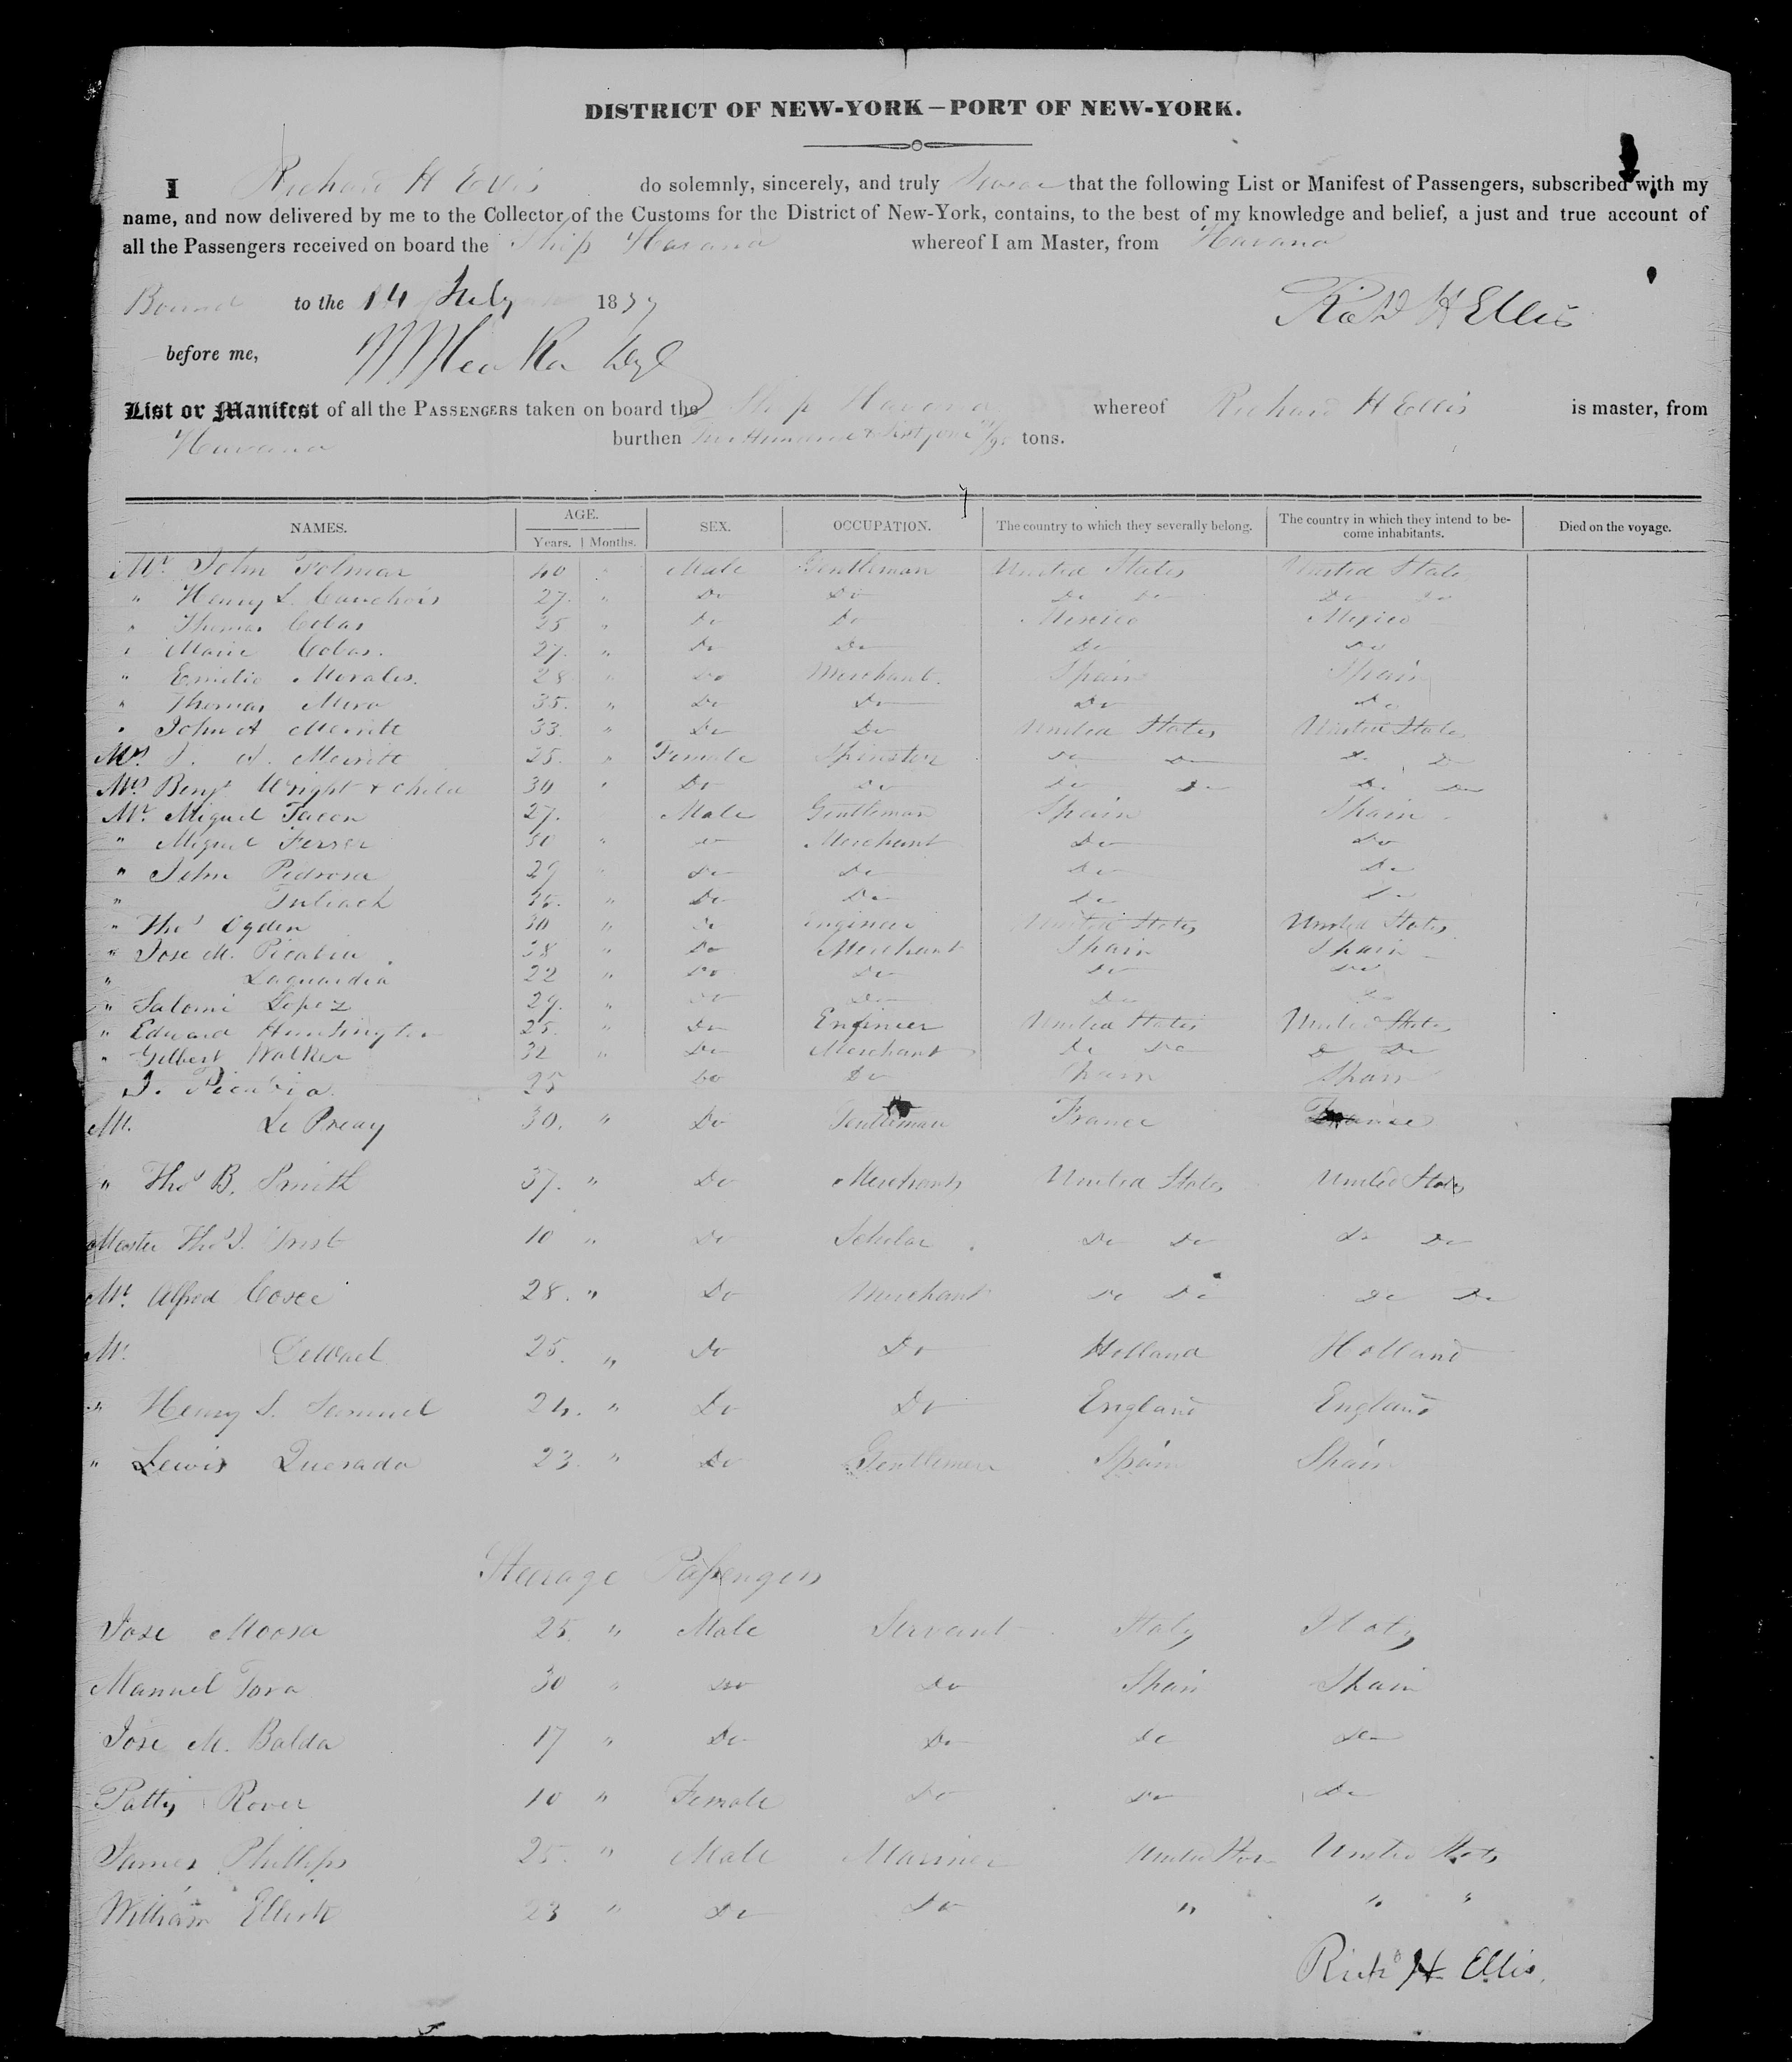 DISTRICT OF NEW-YORK—PORT OF NEW-YORK.
I Richard H Ellis do solemnly, sincerely, and truly swear that the following List or Manifest of Passengers, subscribed with my
name, and now delivered by me to the Collector of the Customs for the District of New-York, contains, to the best of my knowledge and belief, a just and true account of
all the Passengers received on board the Ship Havana whereof I am Master, from Havana
to the 14 July 1837 Richd H Ellis
before me,
List or Manifest of all the PASSENGERS taken on board the Ship Havana whereof Richard H Ellis is master, from
Havana burthen tons.
NAMES. AGE. Years. Months. SEX. OCCUPATION. The country to which they severally belong. The country in which they intend to become inhabitants. Died on the voyage.
Mr. John 40 " Male Gentleman United States United States
" Henry L. Cauchois 27. " Do Do Do Do Do Do
" Thomas Cobas 25 " Do Do Mexico Mexico
" Cobas. 27. " Do Do Do Do
" Emilio Morales. 28 " Do Merchant. Spain Spain
" Thomas 35. " Do Do Do Do
" John A Merritt 33. " Do Do United States United States
Mrs. J. A. Merritt 25. " Female Spinster Do Do Do Do
Mrs Benj. Wright & Child 30 " Do Do Do Do Do Do
Mr. Miguel Tacon 27. Male Gentleman Spain Spain
" Miguel Ferrer 30 " Do Merchant Do Do
" John Pedrosa 29 " Do Do Do Do
" " Do Do Do Do
" Thos Ogden 30 " Do Engineer United States United States
" Jose M. Picabia 38 " Do Merchant Spain Spain
" Laguardia 22 " Do Do Do Do
" Salomi Lopez 29. " Do Do Do Do
" Edward Huntington 25. " Do Engineer United States United States
" Gilbert Walker 32 " Do Merchant Do Do Do Do
J. Picabia 25 Do Do Spain Spain
Mr. 30. " Do Gentleman France France
" Thos B. Smith 37. " Do Merchant United States United States
Master Thos J. Trist 10 " Do Scholar. Do Do Do Do
Mr. Alfred 28. " Do Merchant Do Do Do Do
Mr. DeWael 25. " Do Do Holland Holland
" Henry S. Samuel 24. " Do Do England England
" Lewis Quesada 23. " Do Gentleman Spain Spain
Steerage Passengers
Jose Moosa 25. " Male Servant Italy Italy
Manuel Tora 30 " Do Do Spain Spain
Jose M. Balda 17 " Do Do Do Do
Patty Rover 10 " Female Do Do Do
James Phillips 25. " Male Mariner United States United States
William 23 " Do Do " " "
Richd H Ellis.